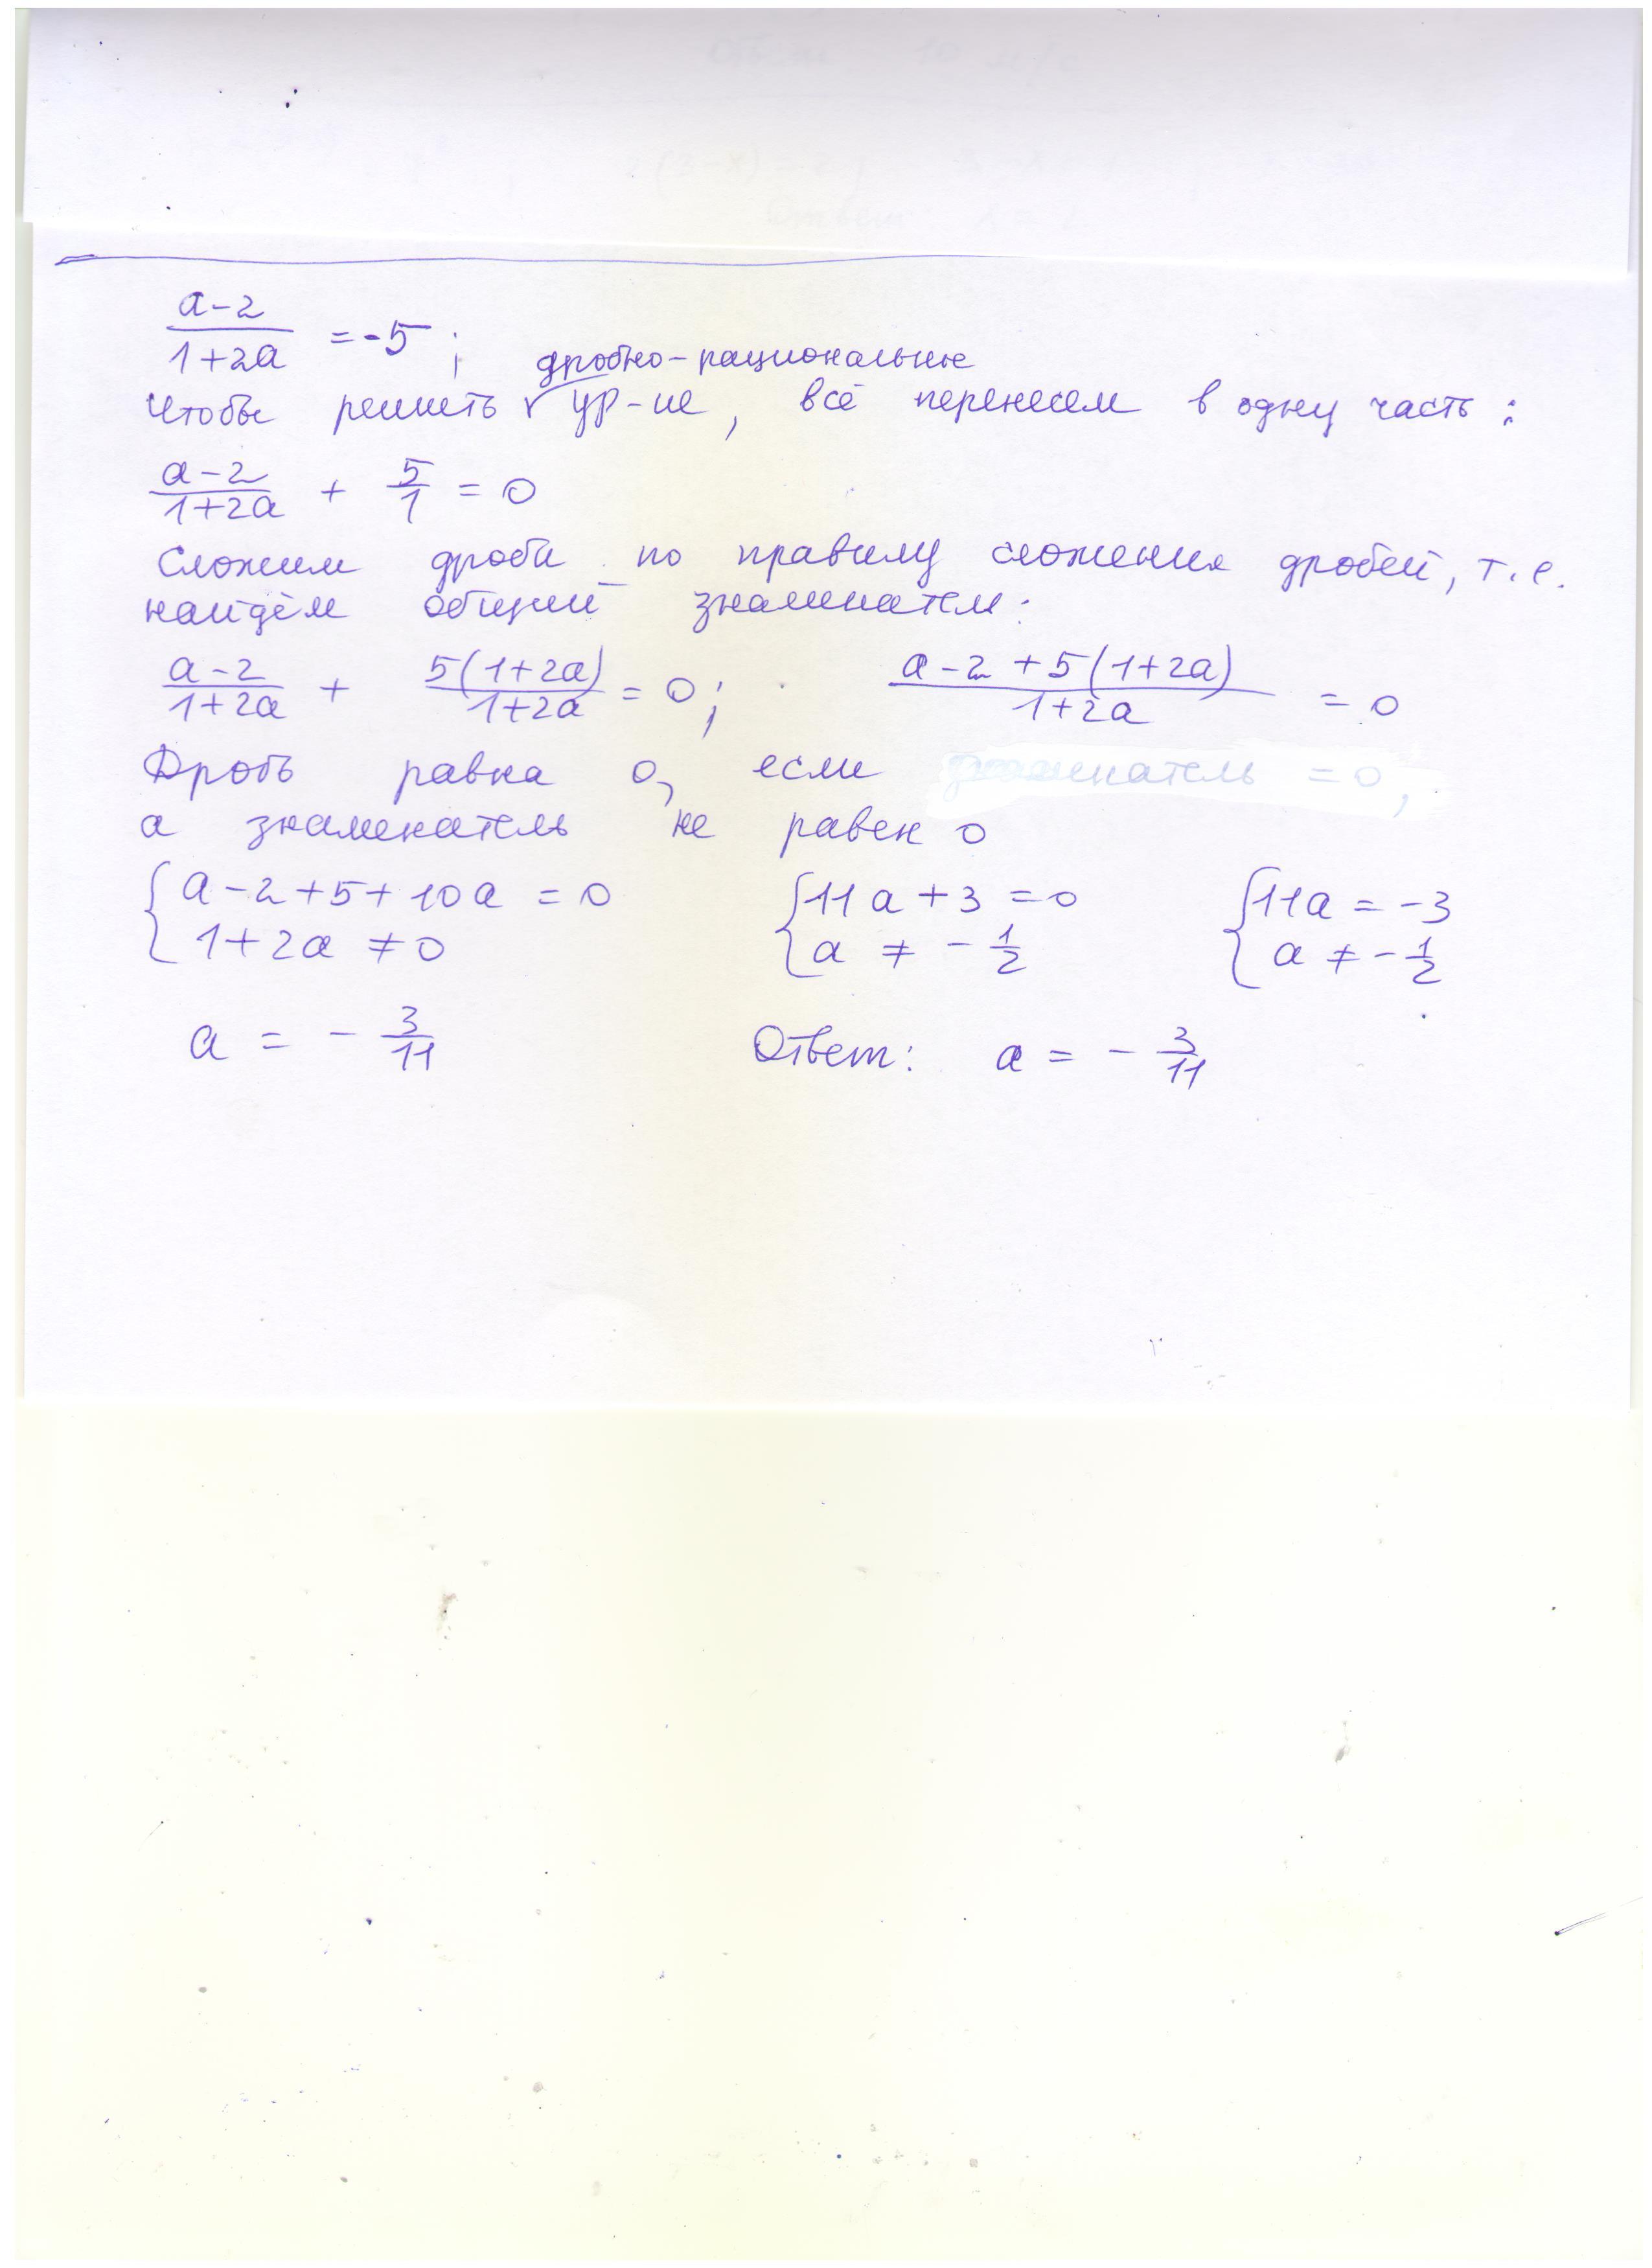 a-2/1+2a = -5;
дробно-рациональные
Чтобы решить √ ур-ие, всё перенесем в одну часть:
a-2/1+2a + 5/1 = 0
Сложим дроби по правилу сложения дробей, т.е.
найдём общий знаменатель:
a-2/1+2a + 5(1+2a)/1+2a = 0; a-2+5(1+2a)/1+2a = 0
Дробь равна 0, если = 0,
а знаменатель не равен 0
{a-2+5+10a = 0 {11a+3=0 {11a = -3
1+2a ≠ 0 a ≠ -1/2 a ≠ -1/2
a = -3/11 Ответ: a = -3/11